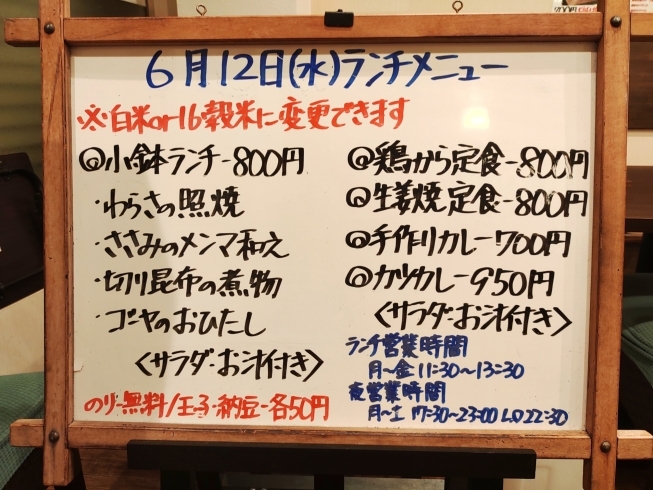 6月12日(水)ランチメニュー
※白米or16穀米に変更できます
◎小鉢ランチ-800円
・わらさの照焼
・ささみのメンマ和え
・切り昆布の煮物
・ゴーヤのおひたし
〈サラダ・お汁付き〉
のり-無料/玉子・納豆-各50円
◎鶏から定食-800円
◎生姜焼定食-800円
◎手作りカレー700円
◎カツカレー950円
〈サラダ・お汁付き〉
ランチ営業時間
月〜金 11:30〜13:30
夜営業時間
月〜土 17:30〜23:00 L.O 22:30